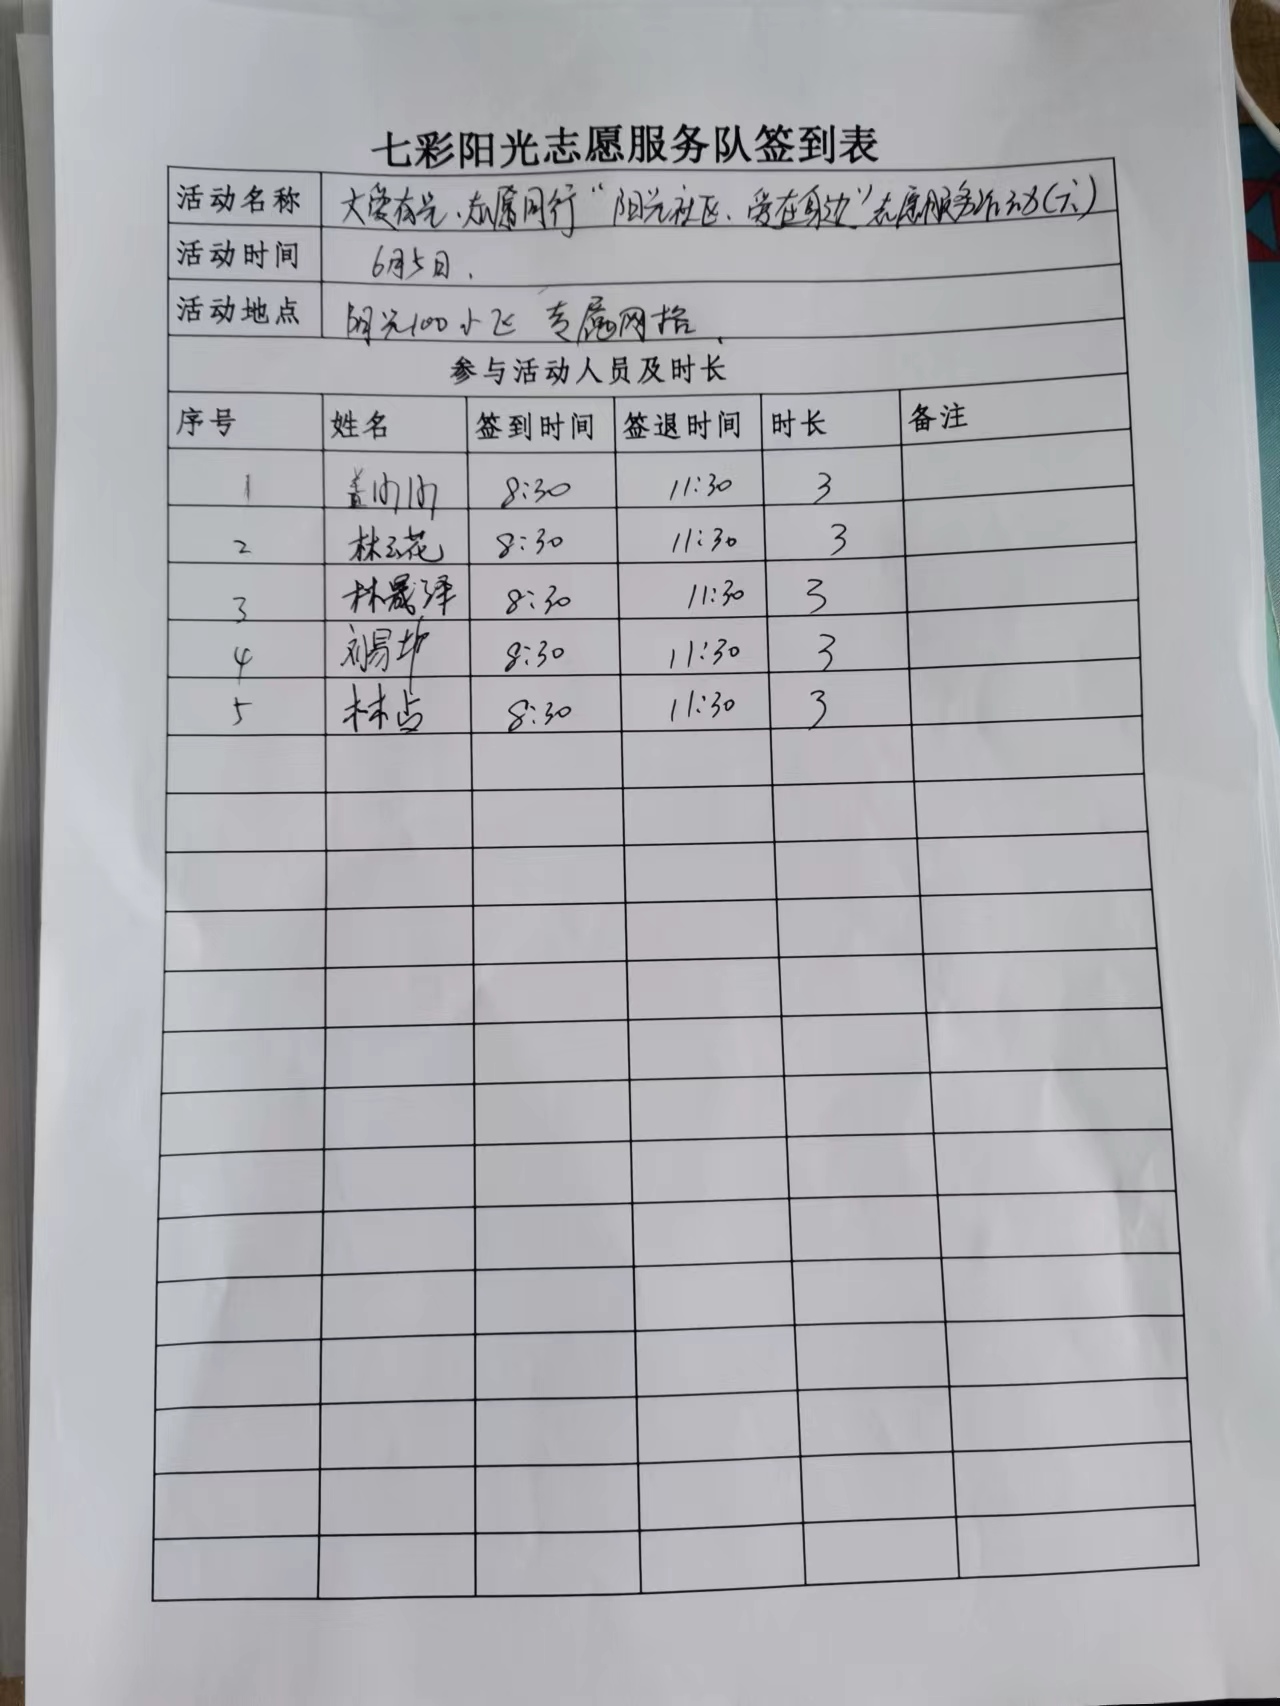 七彩阳光志愿服务队签到表
活动名称 大爱有光、志愿同行“阳光社区、爱在身边”志愿服务活动(六)
活动时间 6月5日.
活动地点 阳光100小区 专属网格
参与活动人员及时长
序号 姓名 签到时间 签退时间 时长 备注
1 8:30 11:30 3
2 林云花 8:30 11:30 3
3 林晟泽 8:30 11:30 3
4 刘易坤 8:30 11:30 3
5 林占 8:30 11:30 3